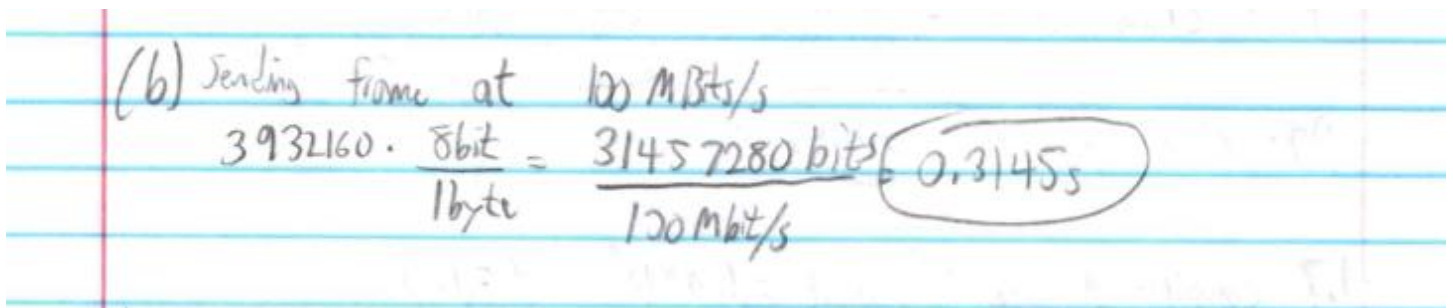 (b) Sending frame at 100 MBits/s
3932160 · 8bit/1byte = 31457280 bits/100 Mbit/s = 0.3145s